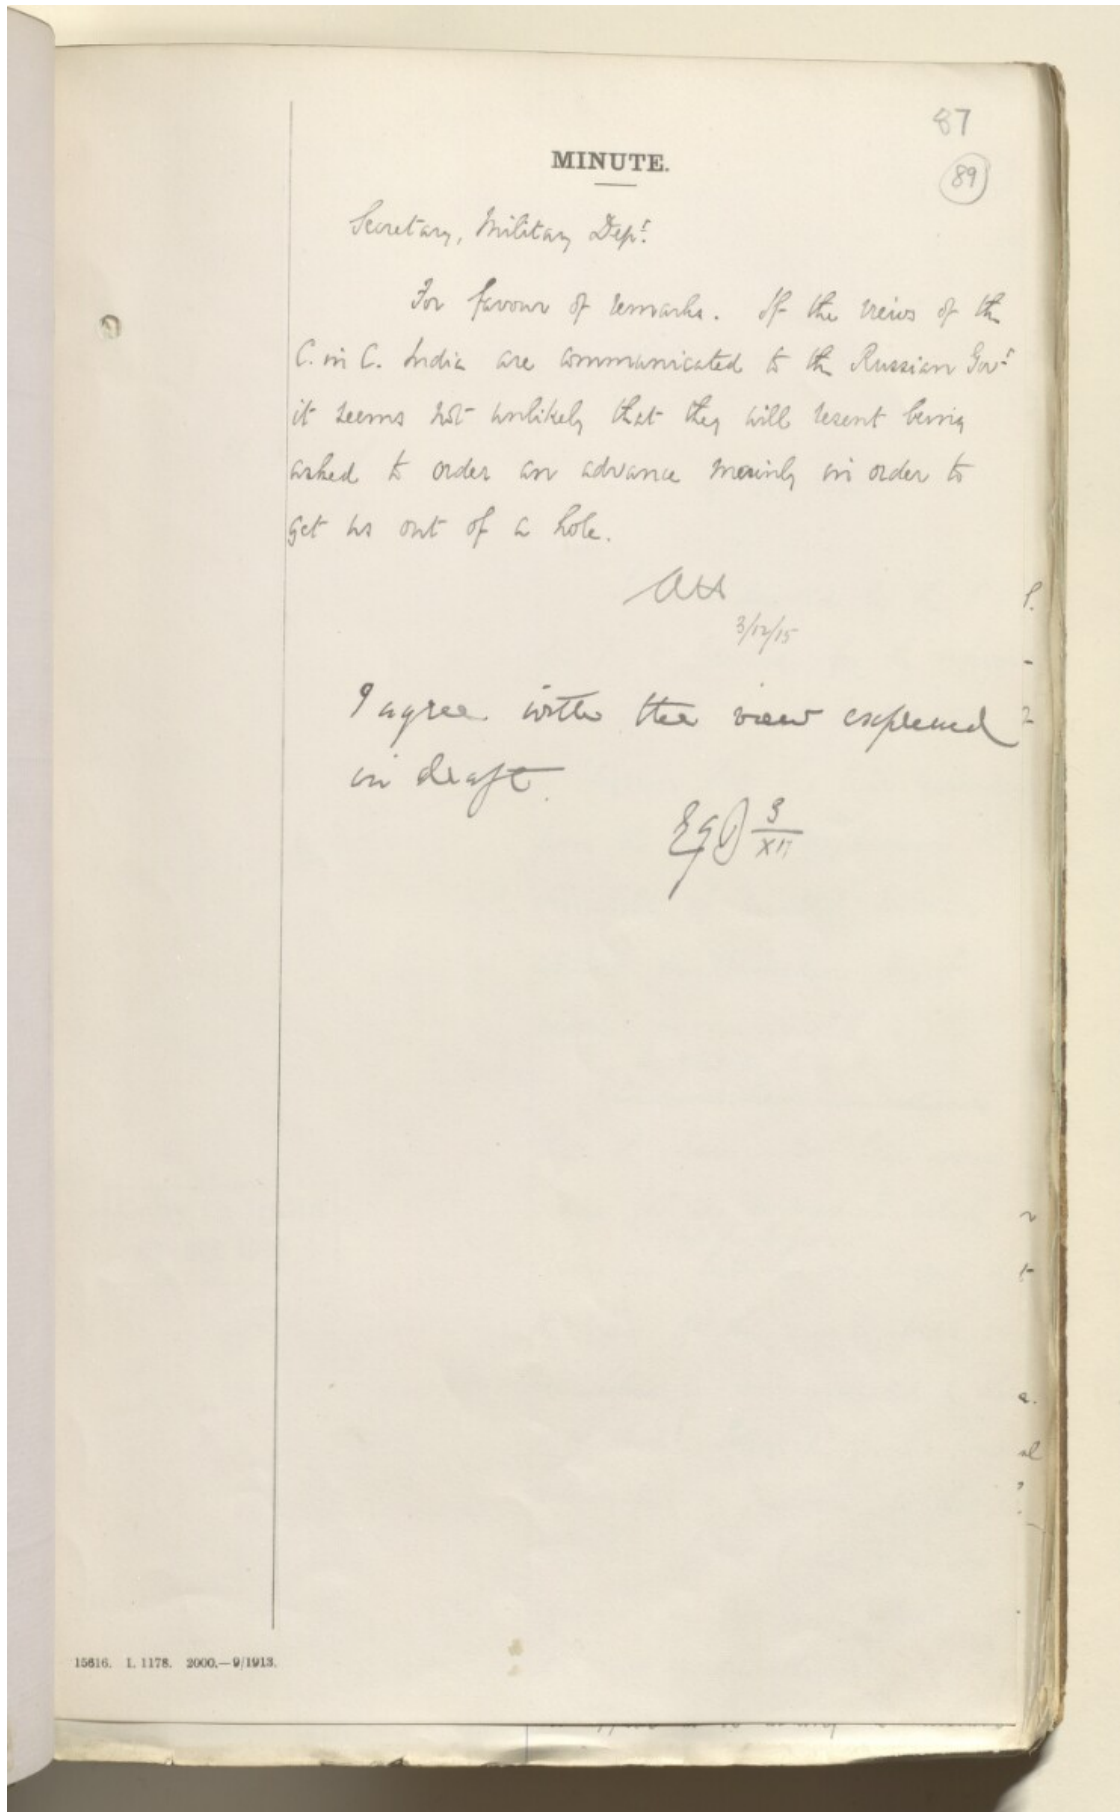 87
MINUTE.
89
Secretary, Military Depᵗ.
For favour of remarks. If the views of the
C. in C. India are communicated to the Russian Govᵗ
it seems not unlikely that they will resent being
asked to order an advance mainly in order to
get us out of a hole.
3/12/15
I agree with the view expressed
in draft.
3
XII
15616. I. 1178. 2000.—9/1913.